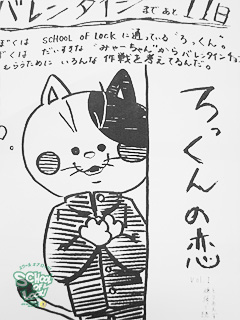 バレンタインまであと11日
ぼくは SCHOOL OF LOCK に通っている"ろっくん"。
ぼくは だいすきな "みゃーちゃん"から バレンタインチョコ
もらうために いろんな 作戦を考えてるんだ。
ろっくんの恋
SCHOOL